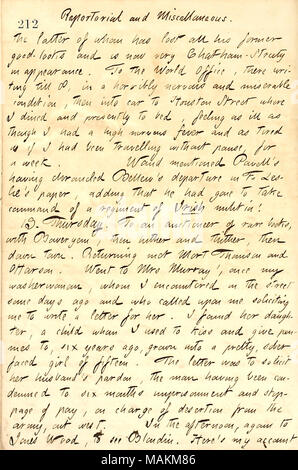 212
Reportorial and Miscellaneous.
the latter of whom has lost all his former
good-looks and is now very Chatham-Streety
in appearance. To the World Office, there wri-
ting till 8, in a horribly nervous and miserable
condition, then into car to Houston Street where
I dined and presently to bed, feeling as ill as
though I had a high nervous fever and as tired
as if I had been travelling without pause, for
a week. Wood mentioned Powell's
having chronicled Bellew's departure in Les-
lie's paper, adding that he had gone to take
command of a regiment of Irish militia!
5. Thursday. To an auctioneer of rare books,
with Boweryem, then hither and thither, then
down town. Returning met Mort Thomson and
Watson. Went to Mrs Murray, once my
washerwoman, whom I encountered in the street
some days ago and who called upon me soliciting
me to write a letter for her. I found her daugh-
ter, a child whom I used to kiss and give pen-
nies to, six years ago, grown into a pretty, sober
faced girl of fifteen. The letter was to solicit
her husband's pardon, the man having been con-
demned to six months imprisonment and stop-
page of pay, on charge of desertion from the
army, out west. In the afternoon, again to
Jones Wood, to see Blondin. Here's my account
alamy
Image ID: MAKM86
www.alamy.com